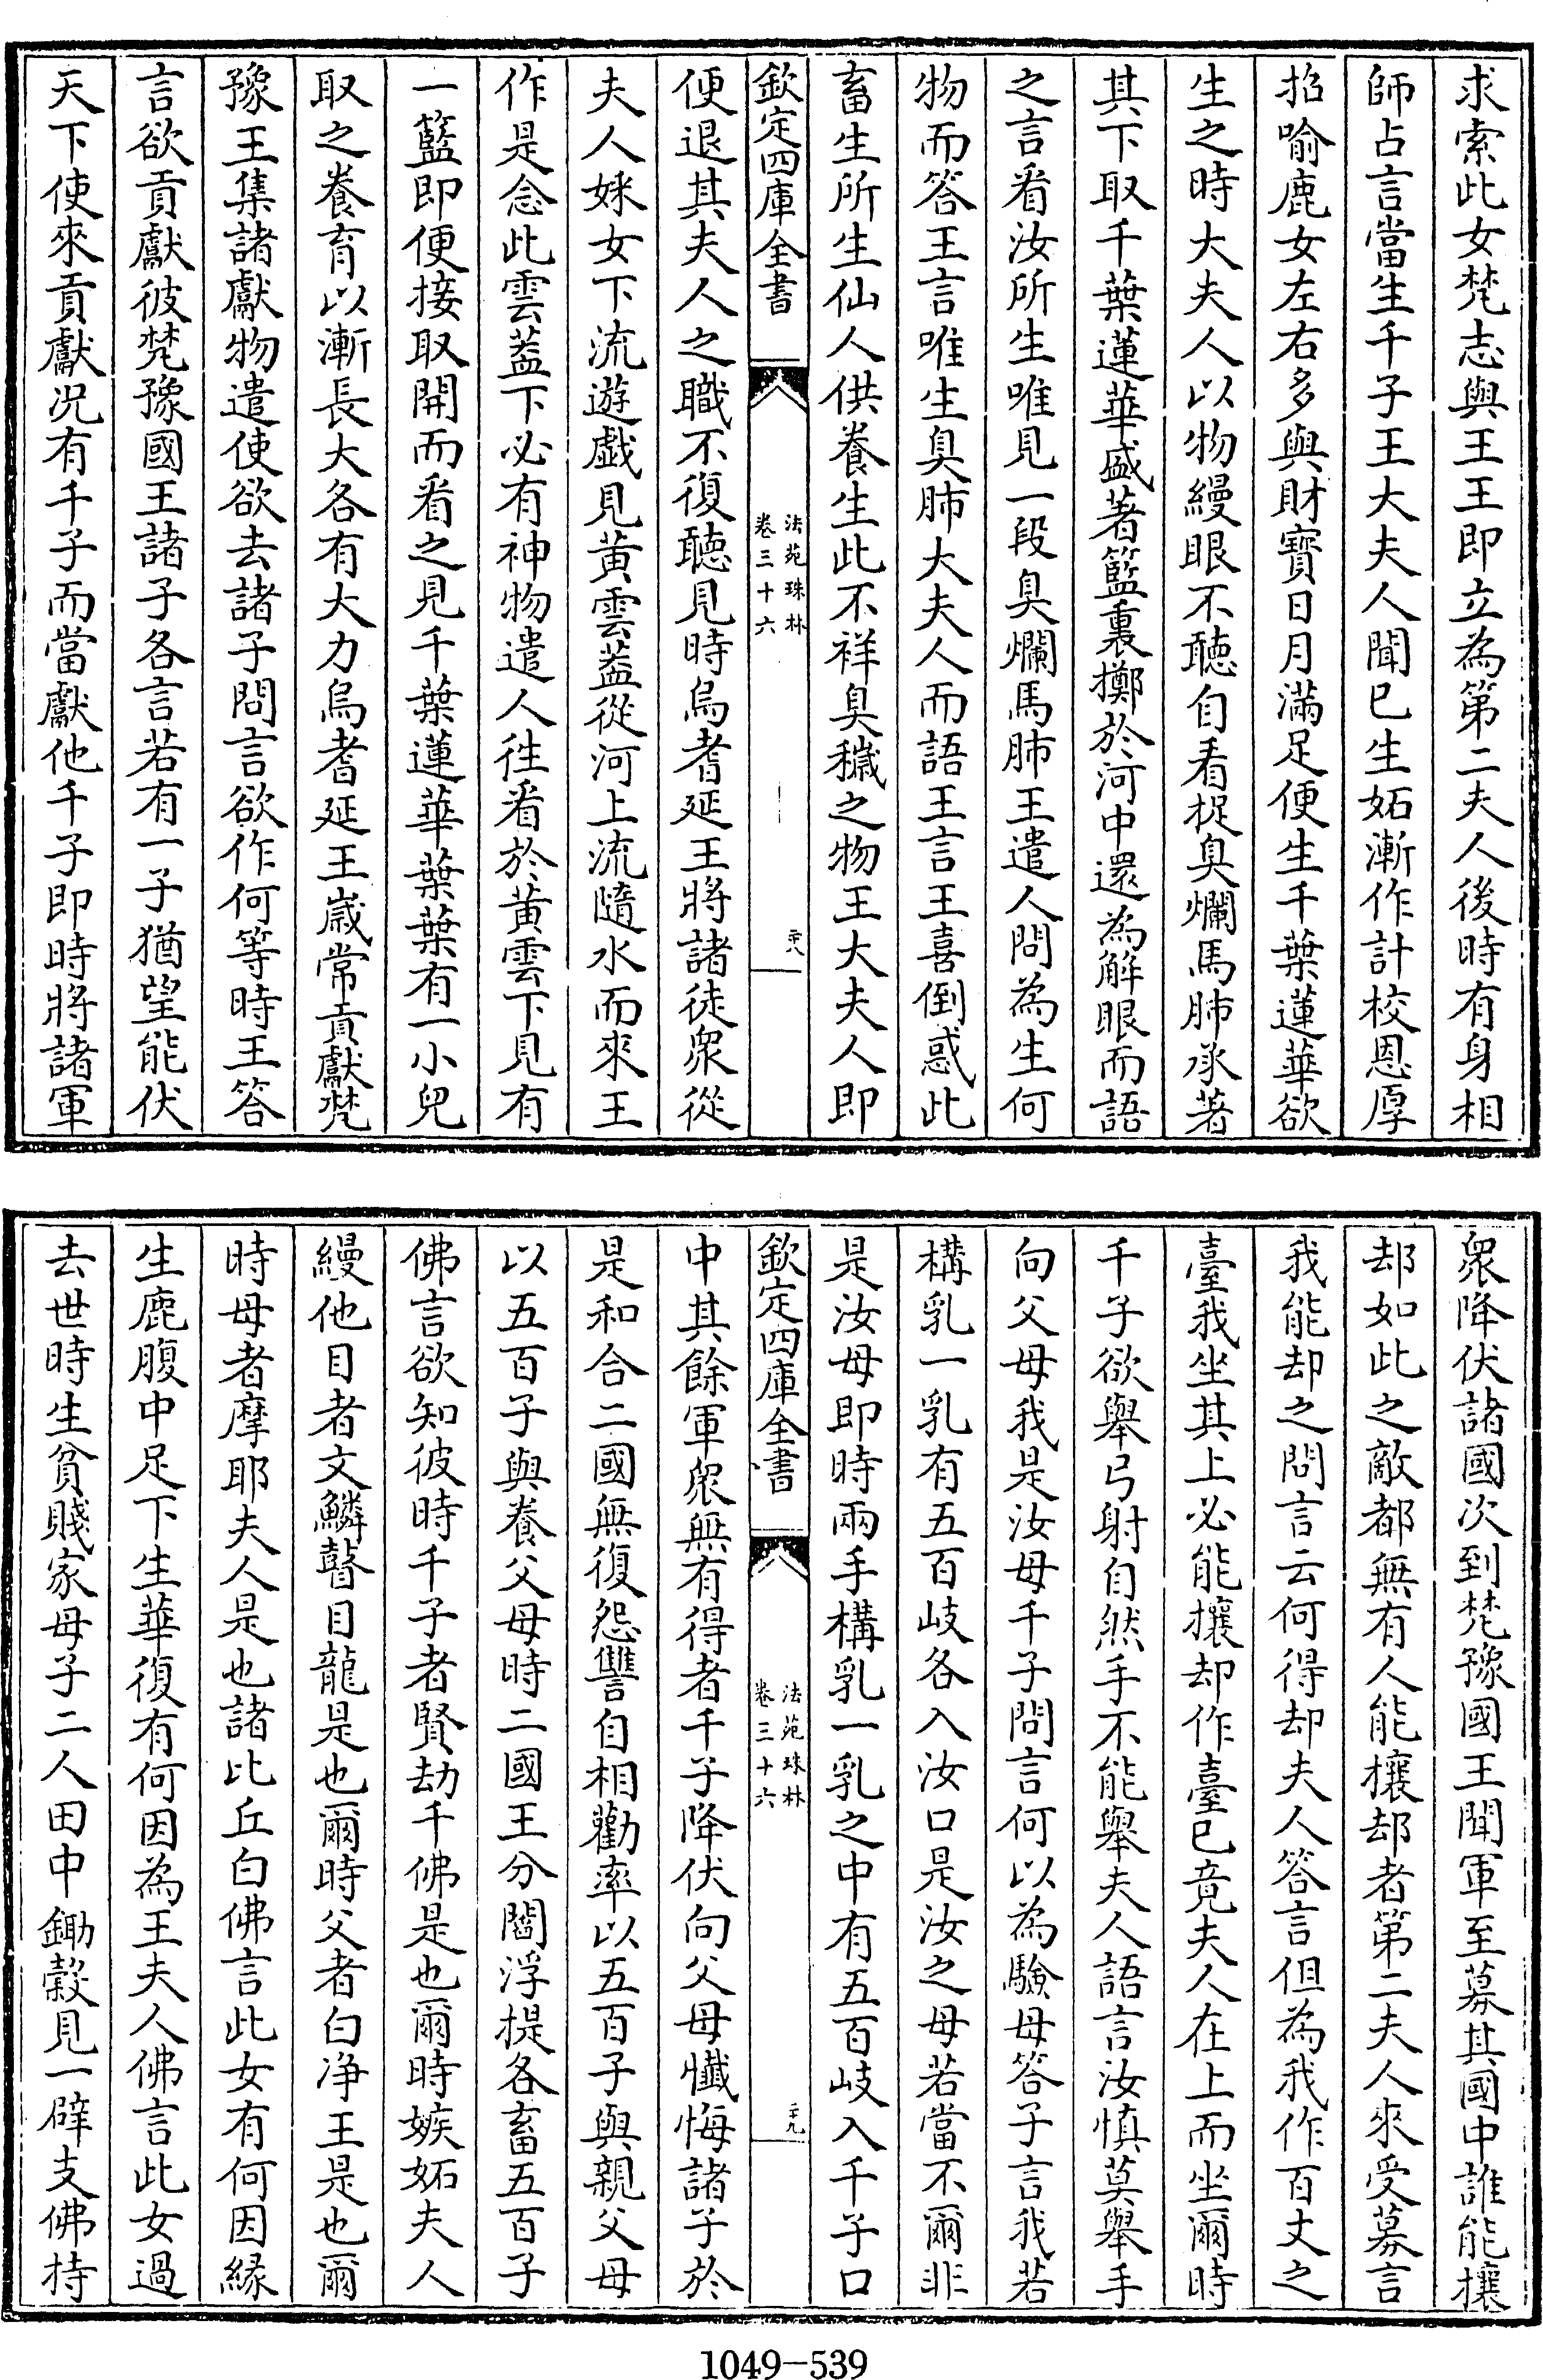 求索此女梵志與王王即立為第二夫人後時有身相
師占言當生千子王大夫人聞已生妬漸作計校恩厚
招喻鹿女左右多與財寶日月滿足便生千葉蓮華欲
生之時大夫人以物縵眼不聽自看捉臭爛馬肺承著
其下取千葉蓮華盛著籃裏擲於河中還為解眼而語
之言看汝所生唯見一段臭爛馬肺王遣人問為生何
物而答王言唯生臭肺大夫人而語王言王喜倒惑此
畜生所生仙人供養生此不祥臭穢之物王大夫人即
欽定四庫全書
法苑珠林
卷三十六
二十八
便退其夫人之職不復聽見時烏耆延王將諸徒衆從
夫人婇女下流遊戲見黃雲葢從河上流隨水而來王
作是念此雲葢下必有神物遣人徃看於黃雲下見有
一籃即便接取開而看之見千葉蓮華葉葉有一小兒
取之養育以漸長大各有大力烏耆延王歲常貢獻梵
豫王集諸獻物遣使欲去諸子問言欲作何等時王答
言欲貢獻彼梵豫國王諸子各言若有一子猶望能伏
天下使來貢獻况有千子而當獻他千子即時將諸軍
衆降伏諸國次到梵豫國王聞軍至募其國中誰能攘
却如此之敵都無有人能攘却者第二夫人來受募言
我能却之問言云何得却夫人答言但為我作百丈之
臺我坐其上必能攘却作臺已竟夫人在上而坐爾時
千子欲舉弓射自然手不能舉夫人語言汝慎莫舉手
向父母我是汝母千子問言何以為驗母答子言我若
構乳一乳有五百岐各入汝口是汝之母若當不爾非
是汝母即時兩手構乳一乳之中有五百岐入千子口
欽定四庫全書
法苑珠林
卷三十六
二十九
中其餘軍衆無有得者千子降伏向父母懺悔諸子於
是和合二國無復怨讐自相勸率以五百子與親父母
以五百子與養父母時二國王分閻浮提各畜五百子
佛言欲知彼時千子者賢劫千佛是也爾時嫉妬夫人
縵他目者文鱗瞽目龍是也爾時父者白净王是也爾
時母者摩耶夫人是也諸比丘白佛言此女有何因緣
生鹿腹中足下生華復有何因為王夫人佛言此女過
去世時生貧賤家母子二人田中鋤穀見一辟支佛持
1049-539